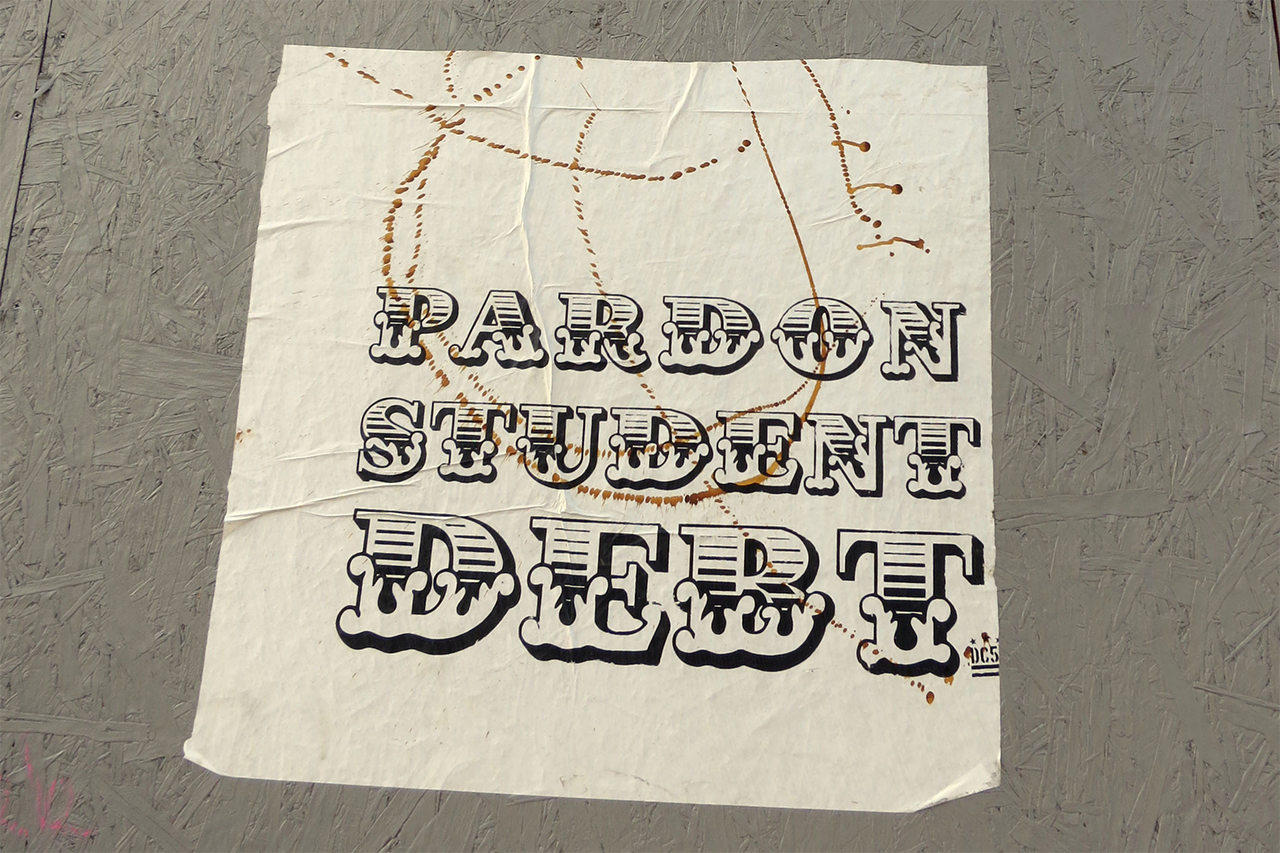 PARDON
STUDENT
DEBT
DC5